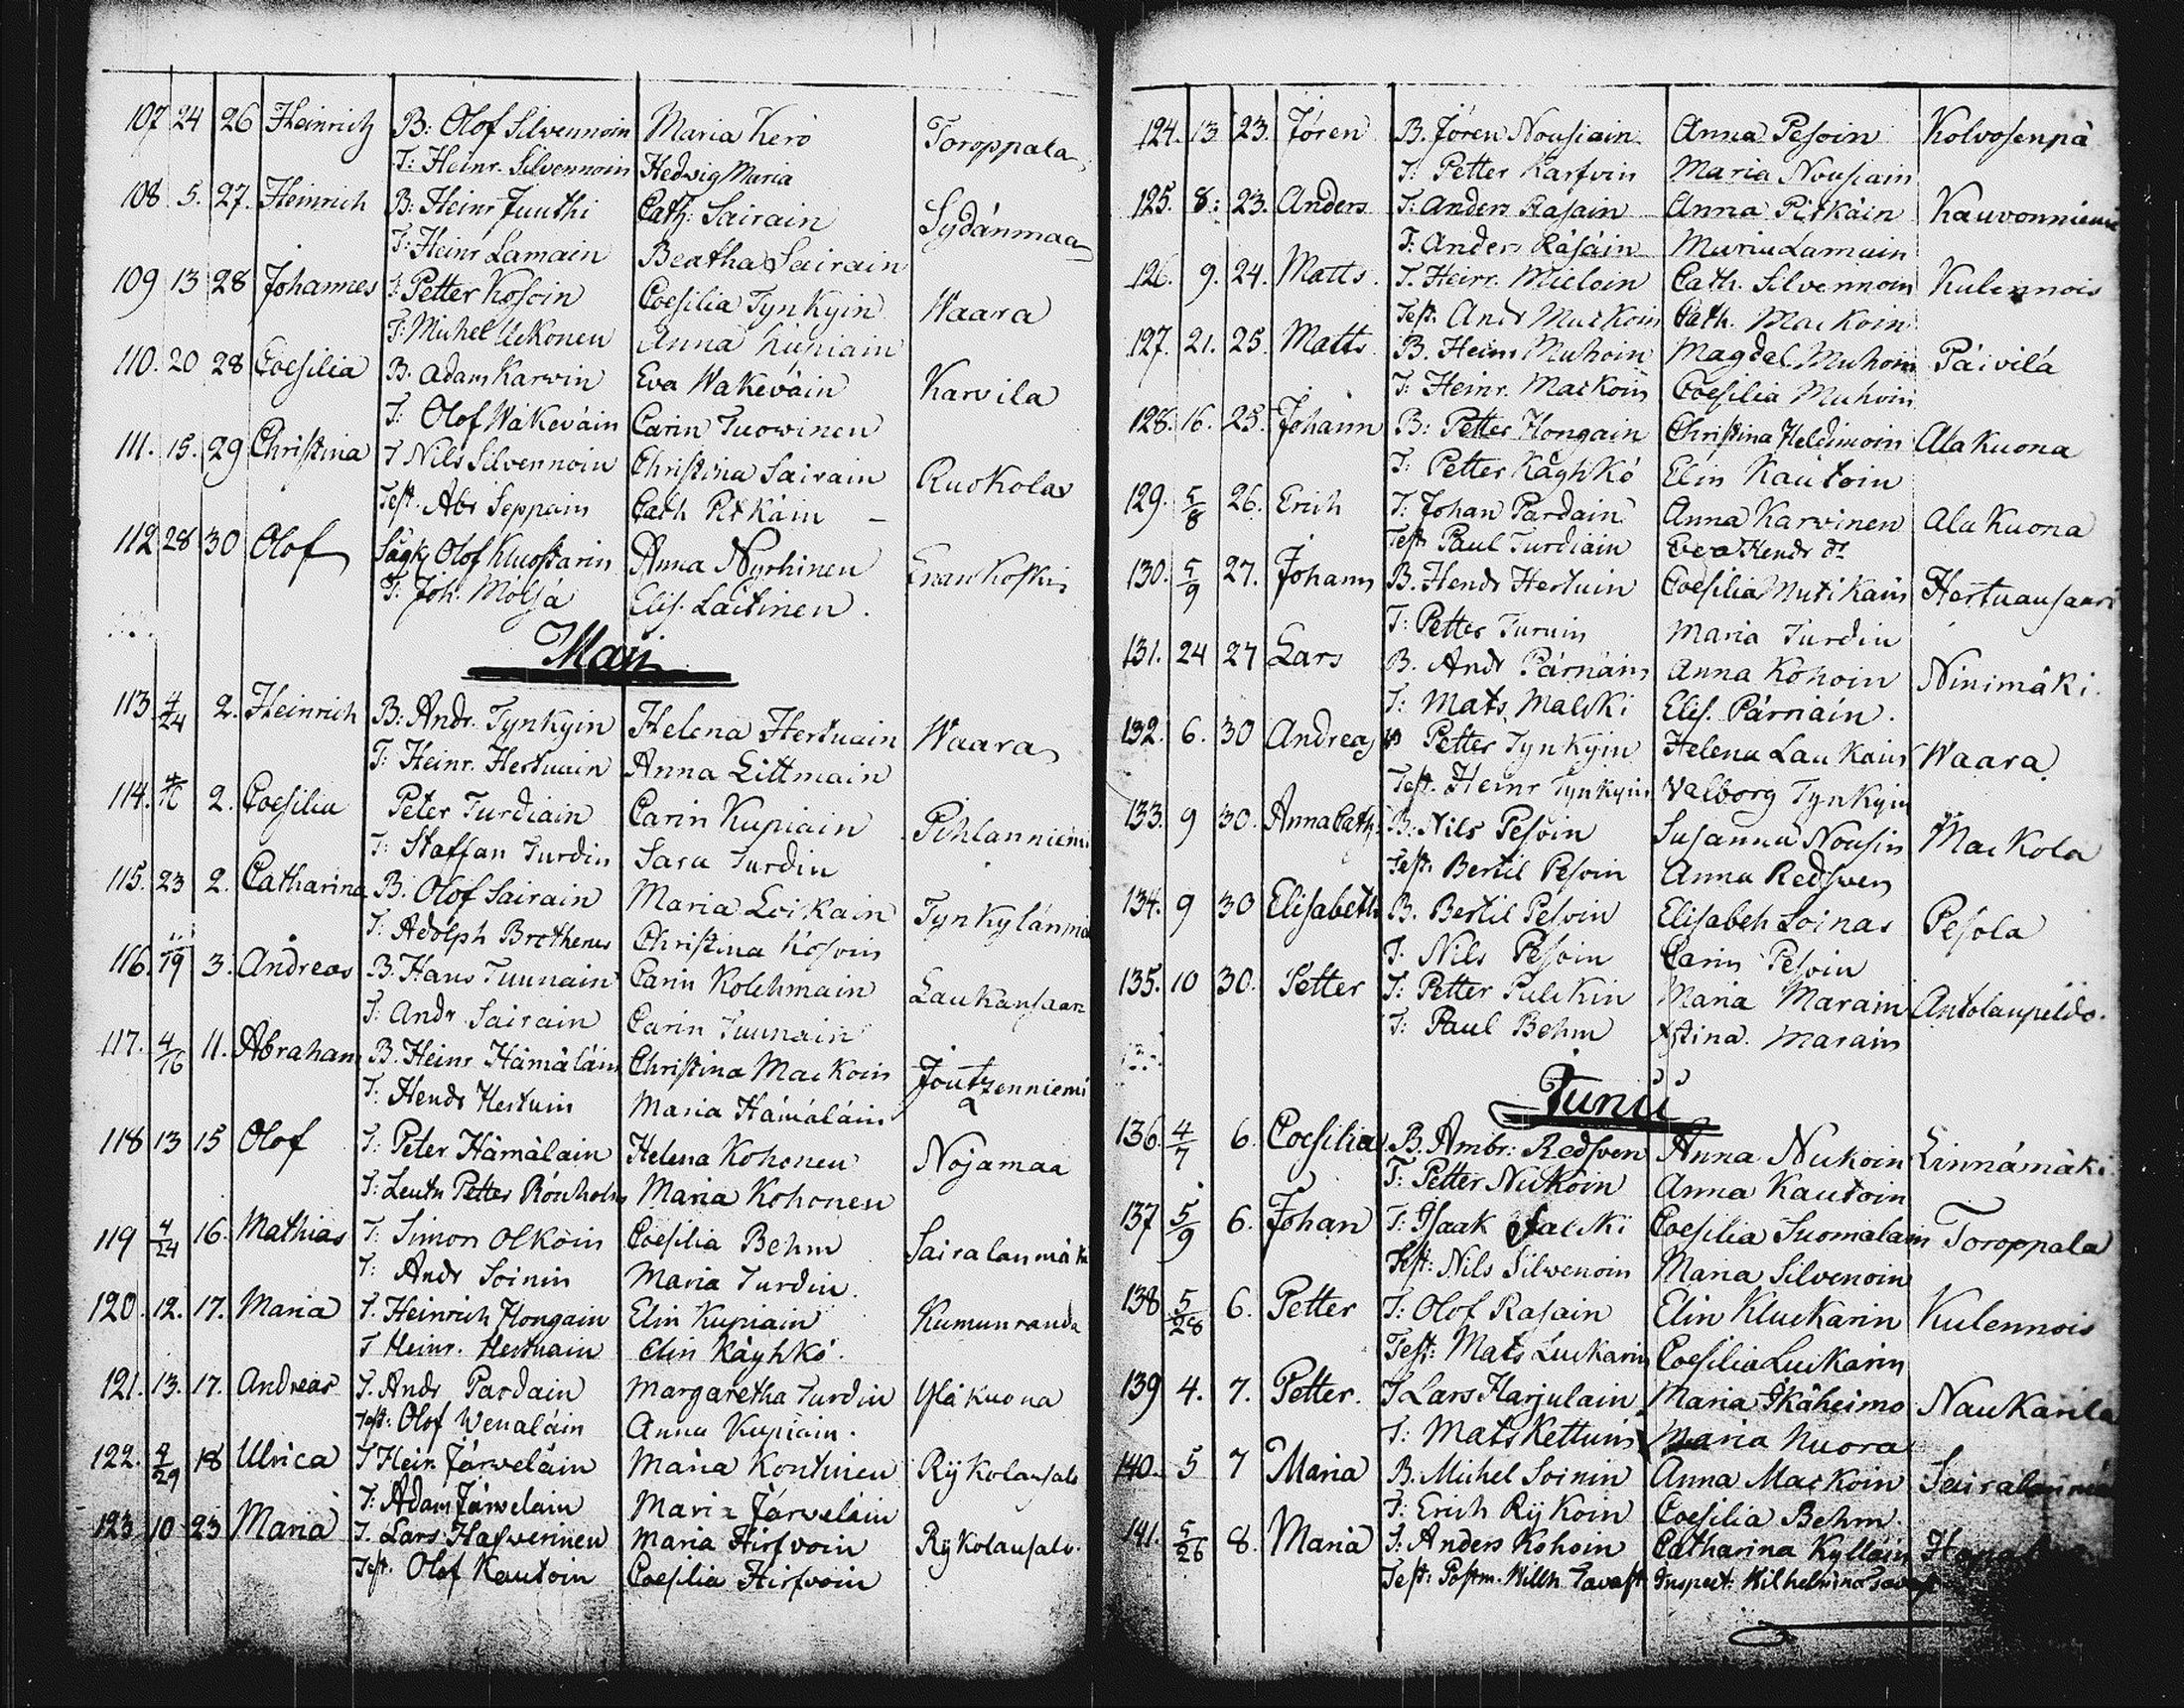 107 24 26 Heinrich B: Olof Silvennoin Maria Kerö Toroppala
T: Heinr. Silvennoin Hedvig Maria
108 5. 27. Heinrich B: Heinr Juuthi Cath: Sairain Sydánmaa
T: Heinr Lamain Beatha Sairain
109 13 28 Johannes T: Petter Kosoin Coesilia Tynkyin Waara
T: Michel Uckonen Anna Kupiain
110. 20 28 Coesilia B. Adam Karvin Eva Wakeváin Karvila
T: Olof Wakeváin Carin Tuowinen
111. 15. 29 Christina T Nils Silvennoin Christina Sairain Ruokolax
Test. Abr Seppain Cath Pitkáin –
112 28 30 Olof Olof Kluostarin Anna Nyrhinen Enankoskis
T: Joh. Mölsá Elis. Laitinen.
Maji
113. 4/24 2. Heinrich B: Andr. Tynkyin Helena Hertuain Waara
T: Heinr. Hertuain Anna Littmain
114. 2. Coesilia Peter Turdiain Carin Kupiain Pihlanniemi
T: Staffan Turdin Sara Turdin
115. 23 2. Catharina B. Olof Sairain Maria Loikain Tynkylánmä
T: Adolph Brotherus Christina Kosoin
116. 3. Andreas B. Hans Tuunain Carin Kolehmain Laukansaari
T: Andr Sairain Carin Tuunain
117. 4/16 11. Abraham B. Heinr Hämäláin Christina Mackoin Joutzenniemi
T: Hendr Hertuin Maria Hámáláin
118 13 15 Olof T: Peter Hämälain Helena Kohonen Nojamaa
T: Leutn Petter Rönholm Maria Kohonen
119 4/24 16. Mathias T: Simon Olkoin Coesilia Behm Sairalanmäki
T: Andr Soinin Maria Turdin.
120. 12. 17. Maria T. Heinrich Hongain Elin Kupiain Kumunranda
T Heinr. Hertuain Elin Káyhkó.
121. 13. 17. Andreas T. Andr Pardain Margaretha Turdin Ylákuona
Test: Olof Wenaláin Anna Kupiain.
122. 4/29 18 Ulrica T Hein Járveláin Maria Kontinen Rijkolansalo
T: Adam Járvelain Maria Járveláin
123. 10 23 Maria T. Lars Hafverinen Maria Hirfvoin Rijkolansalo.
Test. Olof Kautoin Coesilia Hirfvoin
124. 13 23. Jören B. Jören Nousiain Anna Pesoin Kolvosenpä
T: Petter Karfvin Maria Nousiain
125. 8: 23. Anders T: Anders Räsain Anna Pitkäin Kauvonniemi
T: Anders Räsáin Maria Lamain
126. 9. 24. Matts. T. Heinr. Mieloin Cath. Silvennoin Kulennois
Test. Andr Mackoin Cath. Mackoin
127. 21. 25. Matts B. Heinr Muhoin Magdal. Muhoin Páivilá
T: Heinr. Mackoin Coesilia Muhoin
128. 16. 25. Johann B: Petter Hongain Christina Heldimoin Alakuona
T: Petter Käyhkó Elin Kautoin
129. 5/8 26. Erich T: Johan Pardain Anna Karvinen Alakuona
Test. Paul Turdiain Eva Hendr dr
130. 5/9 27. Johann B. Hendr Hertuin Coesilia Mutikain Hertuansaari
T: Petter Turuin Maria Turdin
131. 24 27 Lars B. Andr Párnáin Anna Kohoin Ninimáki.
T: Mats Malski Elis. Párnáin.
132. 6. 30 Andreas Petter Tynkyin Helena Laukain Waara
Test. Heinr Tynkyin Valborg Tynkyin
133. 9 30. Anna Cath. B. Nils Pesoin Susanna Nousin Mackola
Test. Bertil Pesoin Anna Redsven
134. 9 30 Elisabeth B. Bertil Pesoin Elisabeh Loinas Pesola
T. Nils Pesoin Carin Pesoin
135. 10 30. Petter T: Petter Pulckin Maria Marain Antolanpeldo.
T: Paul Behm Xstina. Marain
Junii
136. 4/7 6. Coesilia B. Ambr: Redsven Anna Nukoin Linnámáki
T: Petter Nukoin Anna Kautoin
137 5/9 6. Johan T: Isaak Salcki Coesilia Suomalain Toroppala
Test: Nils Silvenoin Maria Silvenoin
138 5/28 6. Petter T: Olof Rasain Elin Kluckarin Kulennois
Test: Mats Luckarin Coesilia Luckarin
139 4. 7. Petter. T Lars Harjulain Maria Ikäheimo Naukarila
T: Mats Kettuin Maria Nuora
140. 5 7 Maria B. Michel Soinin Anna Mackoin
T: Erich Rijkoin Coesilia Behm.
141. 5/26 8. Maria T: Anders Kohoin Catharina Kylláin
Test: Postm. Willh Tavast Inspect: Wilhelmina Tavast